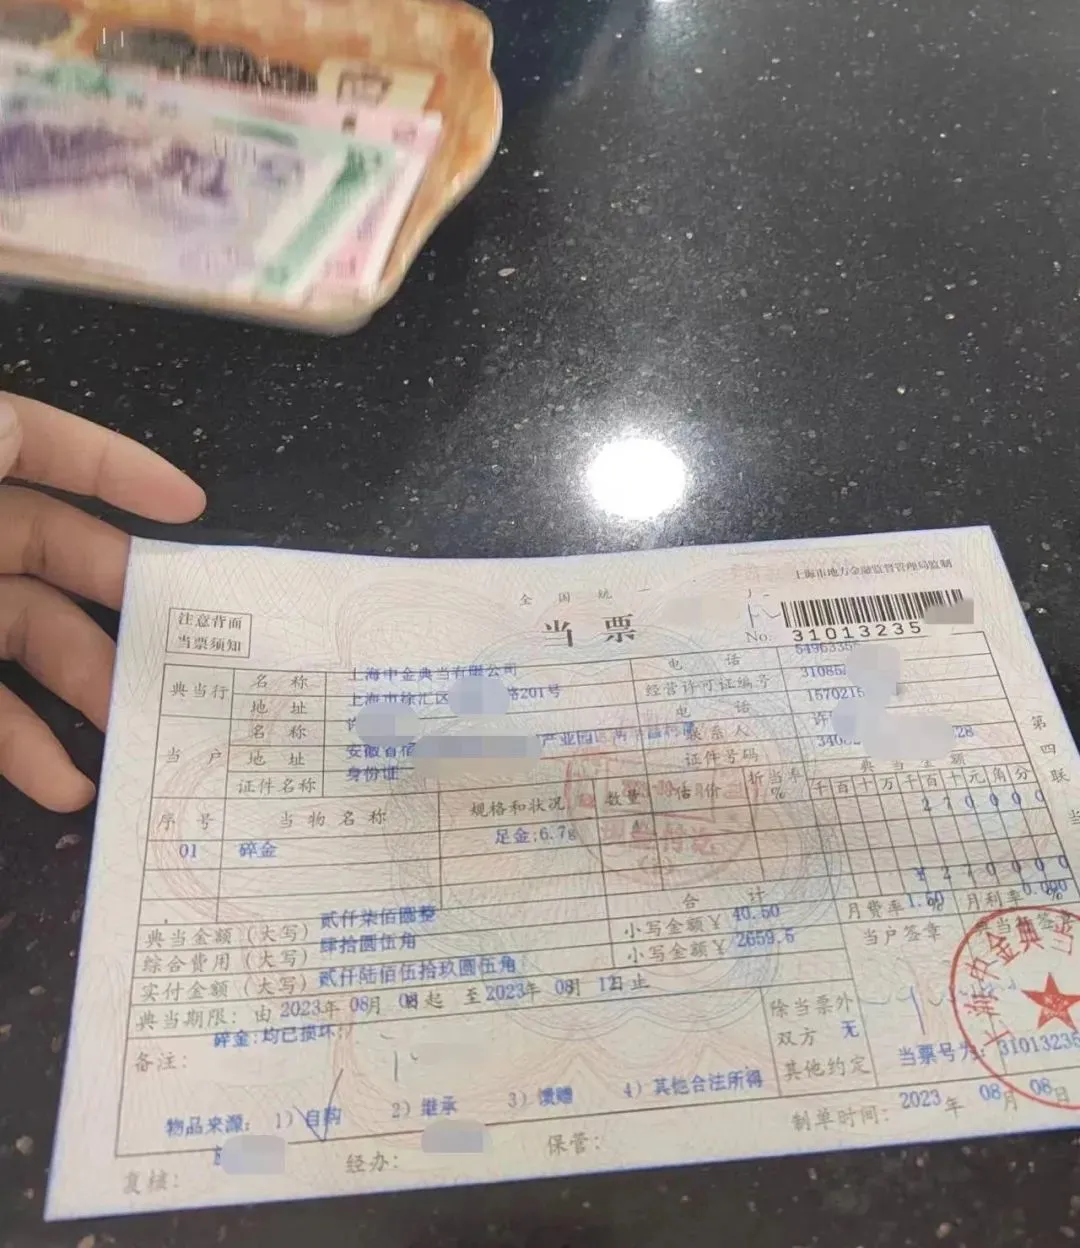 上海市地方金融监督管理局监制
全国统一
当票
注意背面
当票须知
No. 31013235
典当行 名称 上海中金典当有限公司 电话 5496335
地址 上海市徐汇区 路201号 经营许可证编号 3108
当户 名称 许 电话 1570215
地址 安徽省宿 产业园区 联系人 许
证件名称 身份证 证件号码 340 28
序号 当物名称 规格和状况 数量 估价 折当率% 典当金额
千百十万千百十元角分
01 碎金 足金;6.7g 270000
合计 ¥270000
典当金额(大写) 贰仟柒佰圆整
综合费用(大写) 肆拾圆伍角 小写金额¥ 40.50 月费率1.50% 月利率0.000%
实付金额(大写) 贰仟陆佰伍拾玖圆伍角 小写金额¥ 2659.5 当户签章 典当行签章
典当期限: 由 2023年 08月 08日起 至2023年 08月 12日止
备注: 碎金:均已损坏;
除当票外
双方 无
其他约定
当票号为: 31013235
物品来源: 1)自购 2)继承 3)馈赠 4)其他合法所得
制单时间: 2023年 08月 08日
复核: 经办: 保管:
第四联
上海中金典当